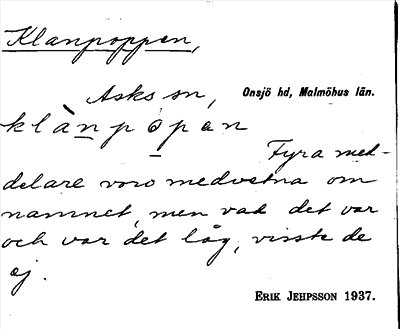 Klanpoppen,
Asks sn, Onsjö hd, Malmöhus län.
klànpópen
Fyra med-
delare voro medvetna om
namnet, men vad det var
och var det låg, visste de
ej.
ERIK JEHPSSON 1937.